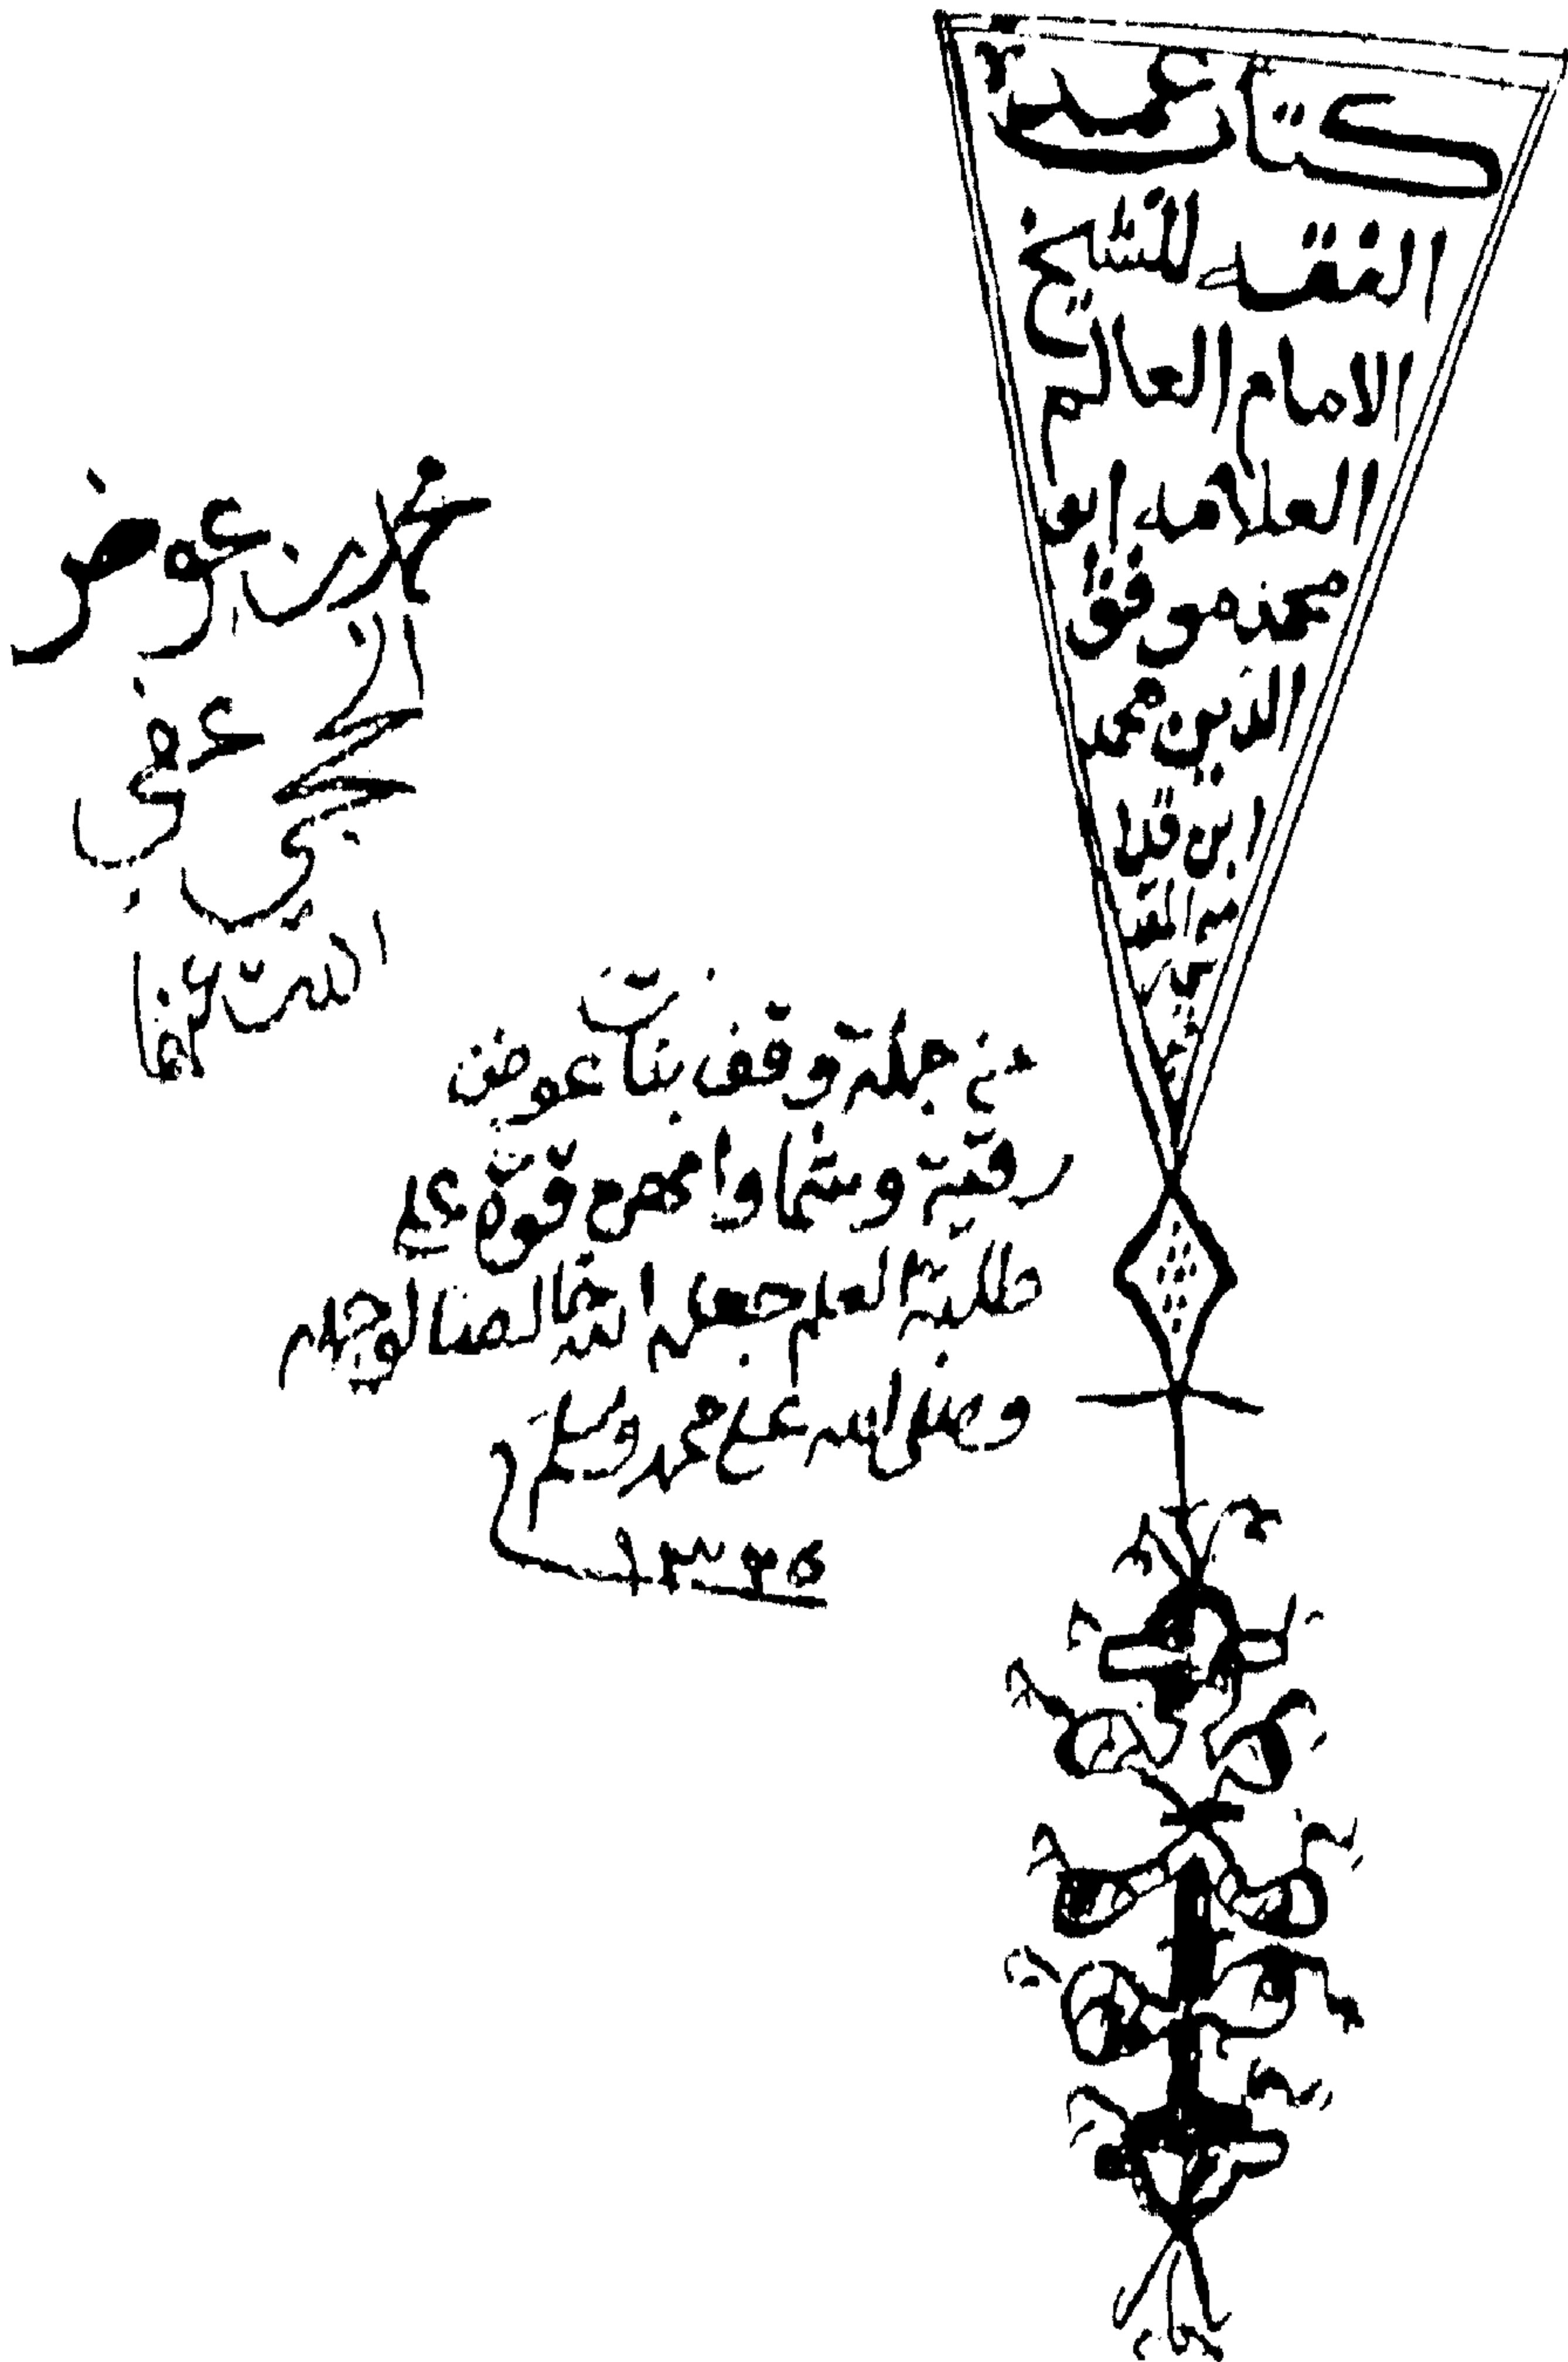 كتاب عمدة
الفقه للشيخ
الامام العالم
العلامه ابو
محمد موفق
الدين محمد
ابن قدا
مه المقد
محمد بن عوض
الحجي عفى
الله عنهما
من جملة وقف بنات عوض
رقية وشما وامهن قوة على
طلبة العلم جعله الله خالصا لوجهه
وصلى الله على محمد وسلم
١٣٢٥